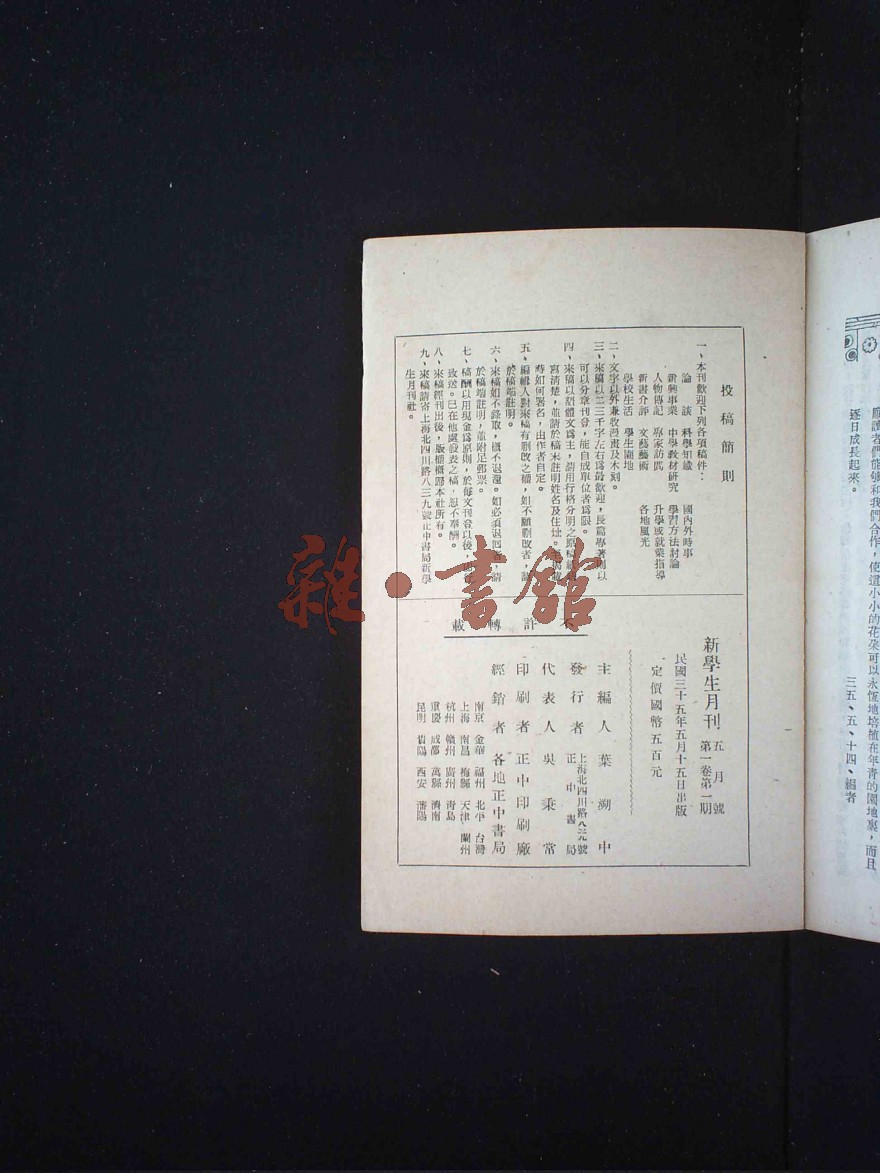 願讀者們能夠和我們合作，使這小小的花朵可以永恆地培植在年青的園地裏，而且
逐日成長起來。
三五、五、十四、編者
投稿簡則
一、本刊歡迎下列各項稿件：
論　談　科學知識　國內外時事
新興事業　中學教材研究　學習方法討論
人物傳記　專家訪問　升學或就業指導
新書介評　文藝藝術　各地風光
學校生活　學生園地
二、文字以外兼收漫畫及木刻。
三、來稿以二三千字左右為最歡迎，長篇專著則以
可以分章刊登，能自成單位者為限。
四、來稿以語體文為主，請用行格分明之原稿紙
寫清楚，並請於稿末註明姓名及住址。
時如何署名，由作者自定。
五、編輯人對來稿有刪改之權，如不願刪改者，請
於稿端註明。
六、來稿如不錄取，概不退還。如必須退回者，請
於稿端註明，並附足郵票。
七、稿酬以用現金為原則，於每文刊登以後，
致送。已在他處發表之稿，恕不奉酬。
八、來稿經刊出後，版權概歸本社所有。
九、來稿請寄上海北四川路八三九號正中書局新學
生月刊社。
新學生月刊　五月號　第一卷第一期
民國三十五年五月十五日出版
定價國幣五百元
不許轉載
主編人　葉溯中
發行者　正中書局　上海北四川路八三九號
代表人　吳秉常
印刷者　正中印刷廠
經銷者　各地正中書局
南京　金華　福州　北平　台灣
上海　南昌　梅縣　天津　蘭州
杭州　贛州　廣州　青島
重慶　成都　萬縣　濟南
昆明　貴陽　西安　瀋陽
雜·書館